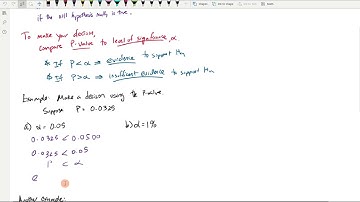 if the null hypothesis really is true.
To make your decision,
compare P-value to level of significance, α
If P < α ⇒ evidence to support Ha
If P > α ⇒ insufficient evidence to support Ha
Example: Make a decision using the P-value.
Suppose P = 0.0325
a) α = 0.05 b) α = 1%
0.0325 < 0.0500
0.0325 < 0.05
P < α